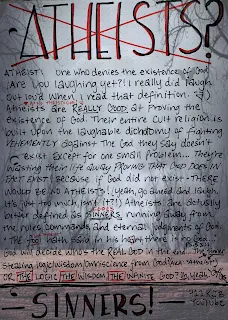 ATHEISTS?
ATHEIST: One who denies the existence of God.
(Are you laughing yet?! I really did laugh
out loud when I read that definition.)
Atheists are REALLY GOOD at proving the
existence of God. Their entire cult religion is
built upon the laughable dichotomy of fighting
VEHEMENTLY against The God they say doesn't
exist. Except for one small problem... They're
wasting their life away PROVING THAT GOD DOES IN
FACT EXIST BECAUSE if God did not exist - THERE
WOULD BE NO ATHEISTS! (yeah, go ahead and laugh.
It's just too much, isn't it?!) Atheists are actually
better defined as SINNERS, running away from
the rules, commands, and eternal Judgments of God.
THE fool hath said in his heart there is no God...
God will decide who's the REAL GOD in the end. The
stealing logic/wisdom/omniscience from God
OR THE LOGIC, THE WISDOM, THE INFINITE GOD?
SINNERS!
YouTube